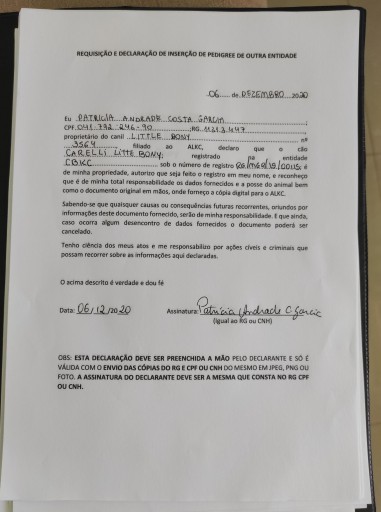 REQUISIÇÃO E DECLARAÇÃO DE INSERÇÃO DE PEDIGREE DE OUTRA ENTIDADE
06 de DEZEMBRO 2020
Eu PATRÍCIA ANDRADE COSTA GARCIA,
CPF 041 792 246-90, RG
proprietário do canil LITTLE BONY nº
3564 filiado ao ALKC, declaro que o cão
CARELLI LITTE BONY, registrado na entidade
CBKC sob o número de registro é
de minha propriedade, autorizo que seja feito o registro em meu nome, e reconheço
que é de minha total responsabilidade os dados fornecidos e a posse do animal bem
como o documento original em mãos, onde forneço a cópia digital para o ALKC.
Sabendo-se que quaisquer causas ou consequências futuras recorrentes, oriundos por
informações deste documento fornecido, serão de minha responsabilidade. E que ainda,
caso ocorra algum desencontro de dados fornecidos o documento poderá ser
cancelado.
Tenho ciência dos meus atos e me responsabilizo por ações cíveis e criminais que
possam recorrer sobre as informações aqui declaradas.
O acima descrito é verdade e dou fé
Data: 06/12/2020 Assinatura: Patrícia Andrade C Garcia
(Igual ao RG ou CNH)
OBS: ESTA DECLARAÇÃO DEVE SER PREENCHIDA A MÃO PELO DECLARANTE E SÓ É
VÁLIDA COM O ENVIO DAS CÓPIAS DO RG E CPF OU CNH DO MESMO EM JPEG, PNG OU
FOTO. A ASSINATURA DO DECLARANTE DEVE SER A MESMA QUE CONSTA NO RG CPF
OU CNH.